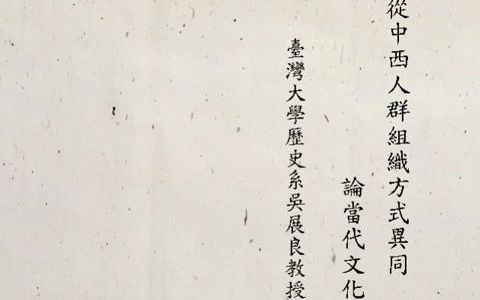 從中西人群組織方式異同
論當代文化
臺灣大學歷史系吳展良教授